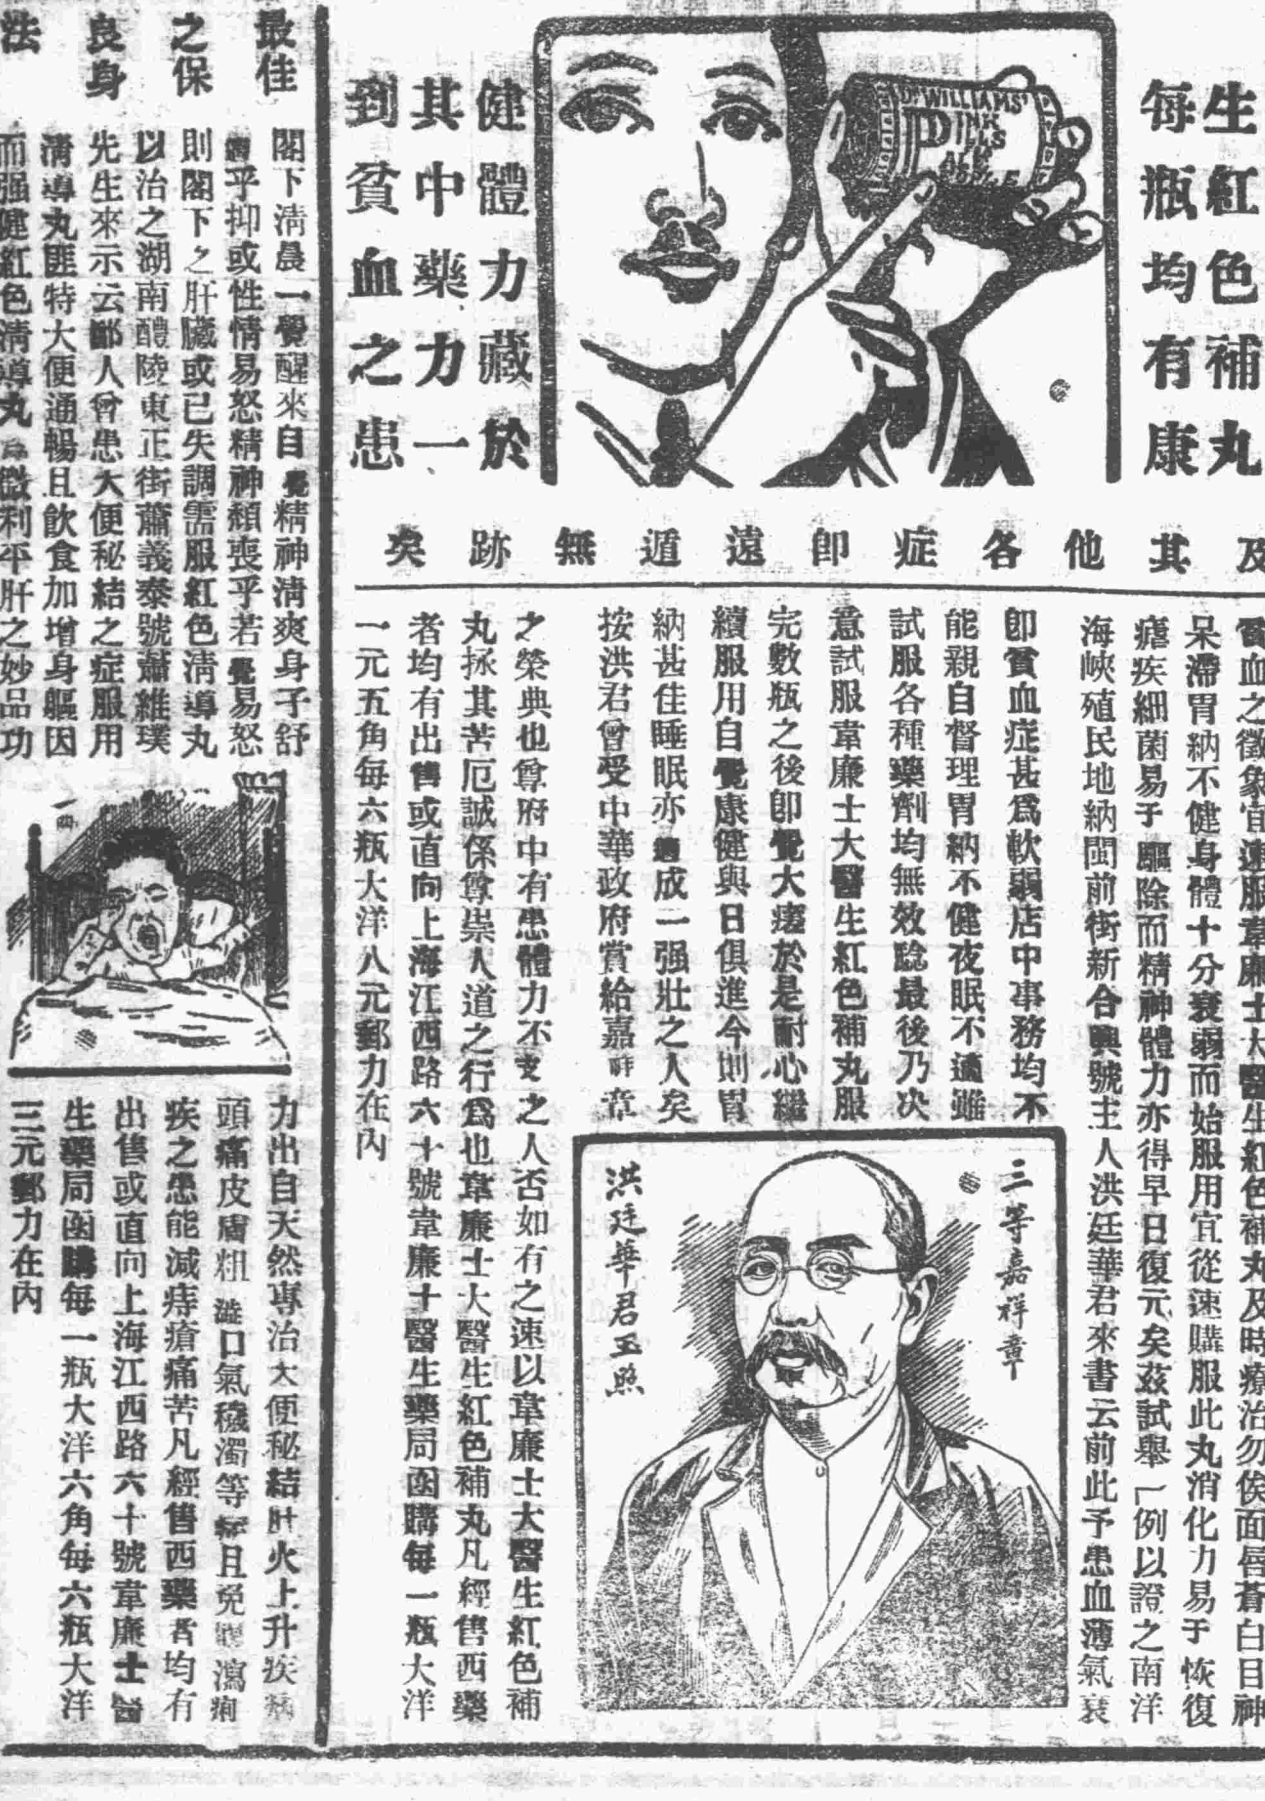 生紅色補丸
每瓶均有康
健體力藏於
其中藥力一
到貧血之患
DR WILLIAMS'
PINK
PILLS
FOR
PALE
PEOPLE
及其他各症卽遠遁無跡矣
貧血之徵象宜速服韋廉士大醫生紅色補丸及時療治勿俟面唇蒼白目神
呆滯胃納不健身體十分衰弱而始服用宜從速購服此丸消化力易于恢復
瘧疾細菌易于驅除而精神體力亦得早日復元矣茲試舉一例以證之南洋
海峽殖民地納閩前街新合興號主人洪廷華君來書云前此予患血薄氣衰
卽貧血症甚爲軟弱店中事務均不
能親自督理胃納不健夜眠不適雖
試服各種藥劑均無效騐最後乃决
意試服韋廉士大醫生紅色補丸服
完數瓶之後卽覺大瘥於是耐心繼
續服用自覺康健與日俱進今則胃
納甚佳睡眠亦適成一强壯之人矣
按洪君曾受中華政府賞給嘉祥章
三等嘉祥章
洪廷華君玉照
之榮典也尊府中有患體力不支之人否如有之速以韋廉士大醫生紅色補
丸拯其苦厄誠係尊崇人道之行爲也韋廉士大醫生紅色補丸凡經售西藥
者均有出售或直向上海江西路六十號韋廉士醫生藥局函購每一瓶大洋
一元五角每六瓶大洋八元郵力在內
最佳
之保
良身
法
閣下清晨一覺醒來自覺精神清爽身子舒
適乎抑或性情易怒精神頹喪乎若覺易怒
則閣下之肝臟或已失調需服紅色清導丸
以治之湖南醴陵東正街蕭義泰號蕭維璞
先生來示云鄙人曾患大便秘結之症服用
清導丸匪特大便通暢且飲食加增身軀因
而强健紅色清導丸爲微利平肝之妙品功
力出自天然專治大便秘結肝火上升疾病
頭痛皮膚粗澁口氣穢濁等症且免瀉痢
疾之患能減痔瘡痛苦凡經售西藥者均有
出售或直向上海江西路六十號韋廉士醫
生藥局函購每一瓶大洋六角每六瓶大洋
三元郵力在內